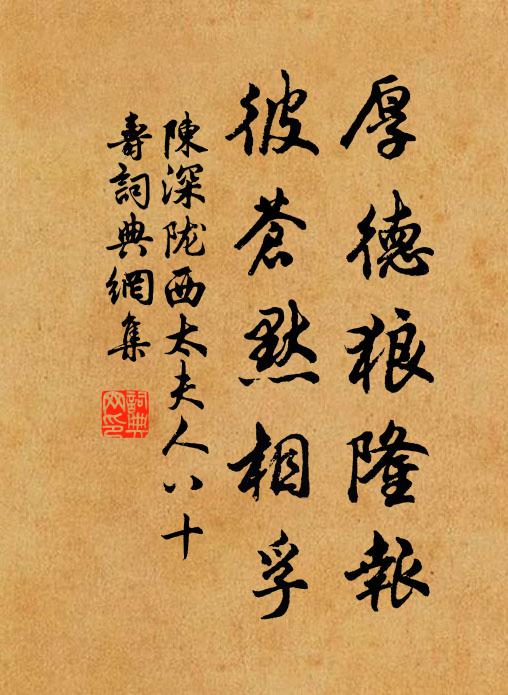 厚德狼隆報
彼蒼默相孚
陳深陇西太夫人八十
壽詞典網集
詞典
网印